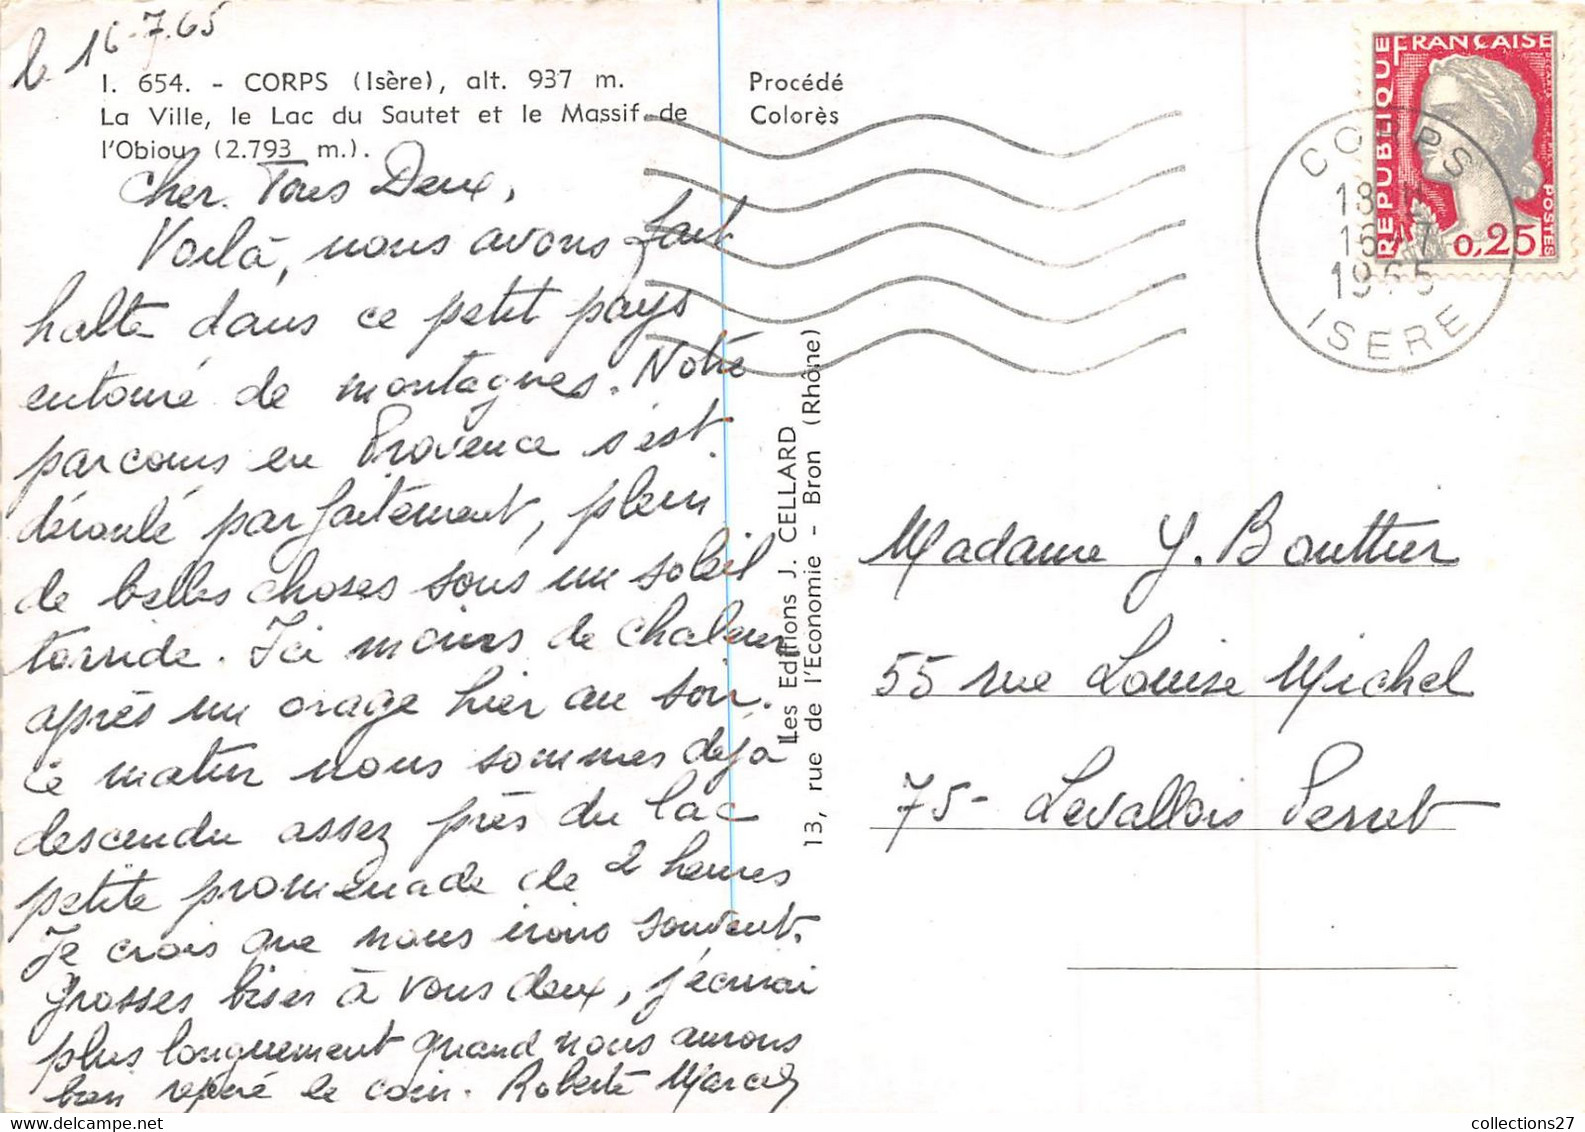 le 16-7.65
I. 654. - CORPS (Isère), alt. 937 m.
La Ville, le Lac du Sautet et le Massif de
l'Obiou (2.793 m.).
Procédé
Colorès
Cher Tous Deux,
Voilà, nous avons fait
halte dans ce petit pays
entouré de montagnes. Notre
parcours en Provence s'est
déroulé parfaitement, plein
de belles choses sous un soleil
torride. Ici moins de chaleur
après un orage hier au soir.
Ce matin nous sommes déjà
descendu assez près du lac
petite promenade de 2 heures
Je crois que nous irons souvent.
Grosses bises à vous deux, j'écrirai
plus longuement quand nous aurons
bien repéré le coin. Roberte Marcel
Les Editions J. CELLARD
13, rue de l'Economie - Bron (Rhône)
RÉPUBLIQUE FRANÇAISE
POSTES
0,25
CORPS
18 H
16-7
1965
ISERE
Madame Y. Bouttier
55 rue Louise Michel
75- Levallois Perret
collections27